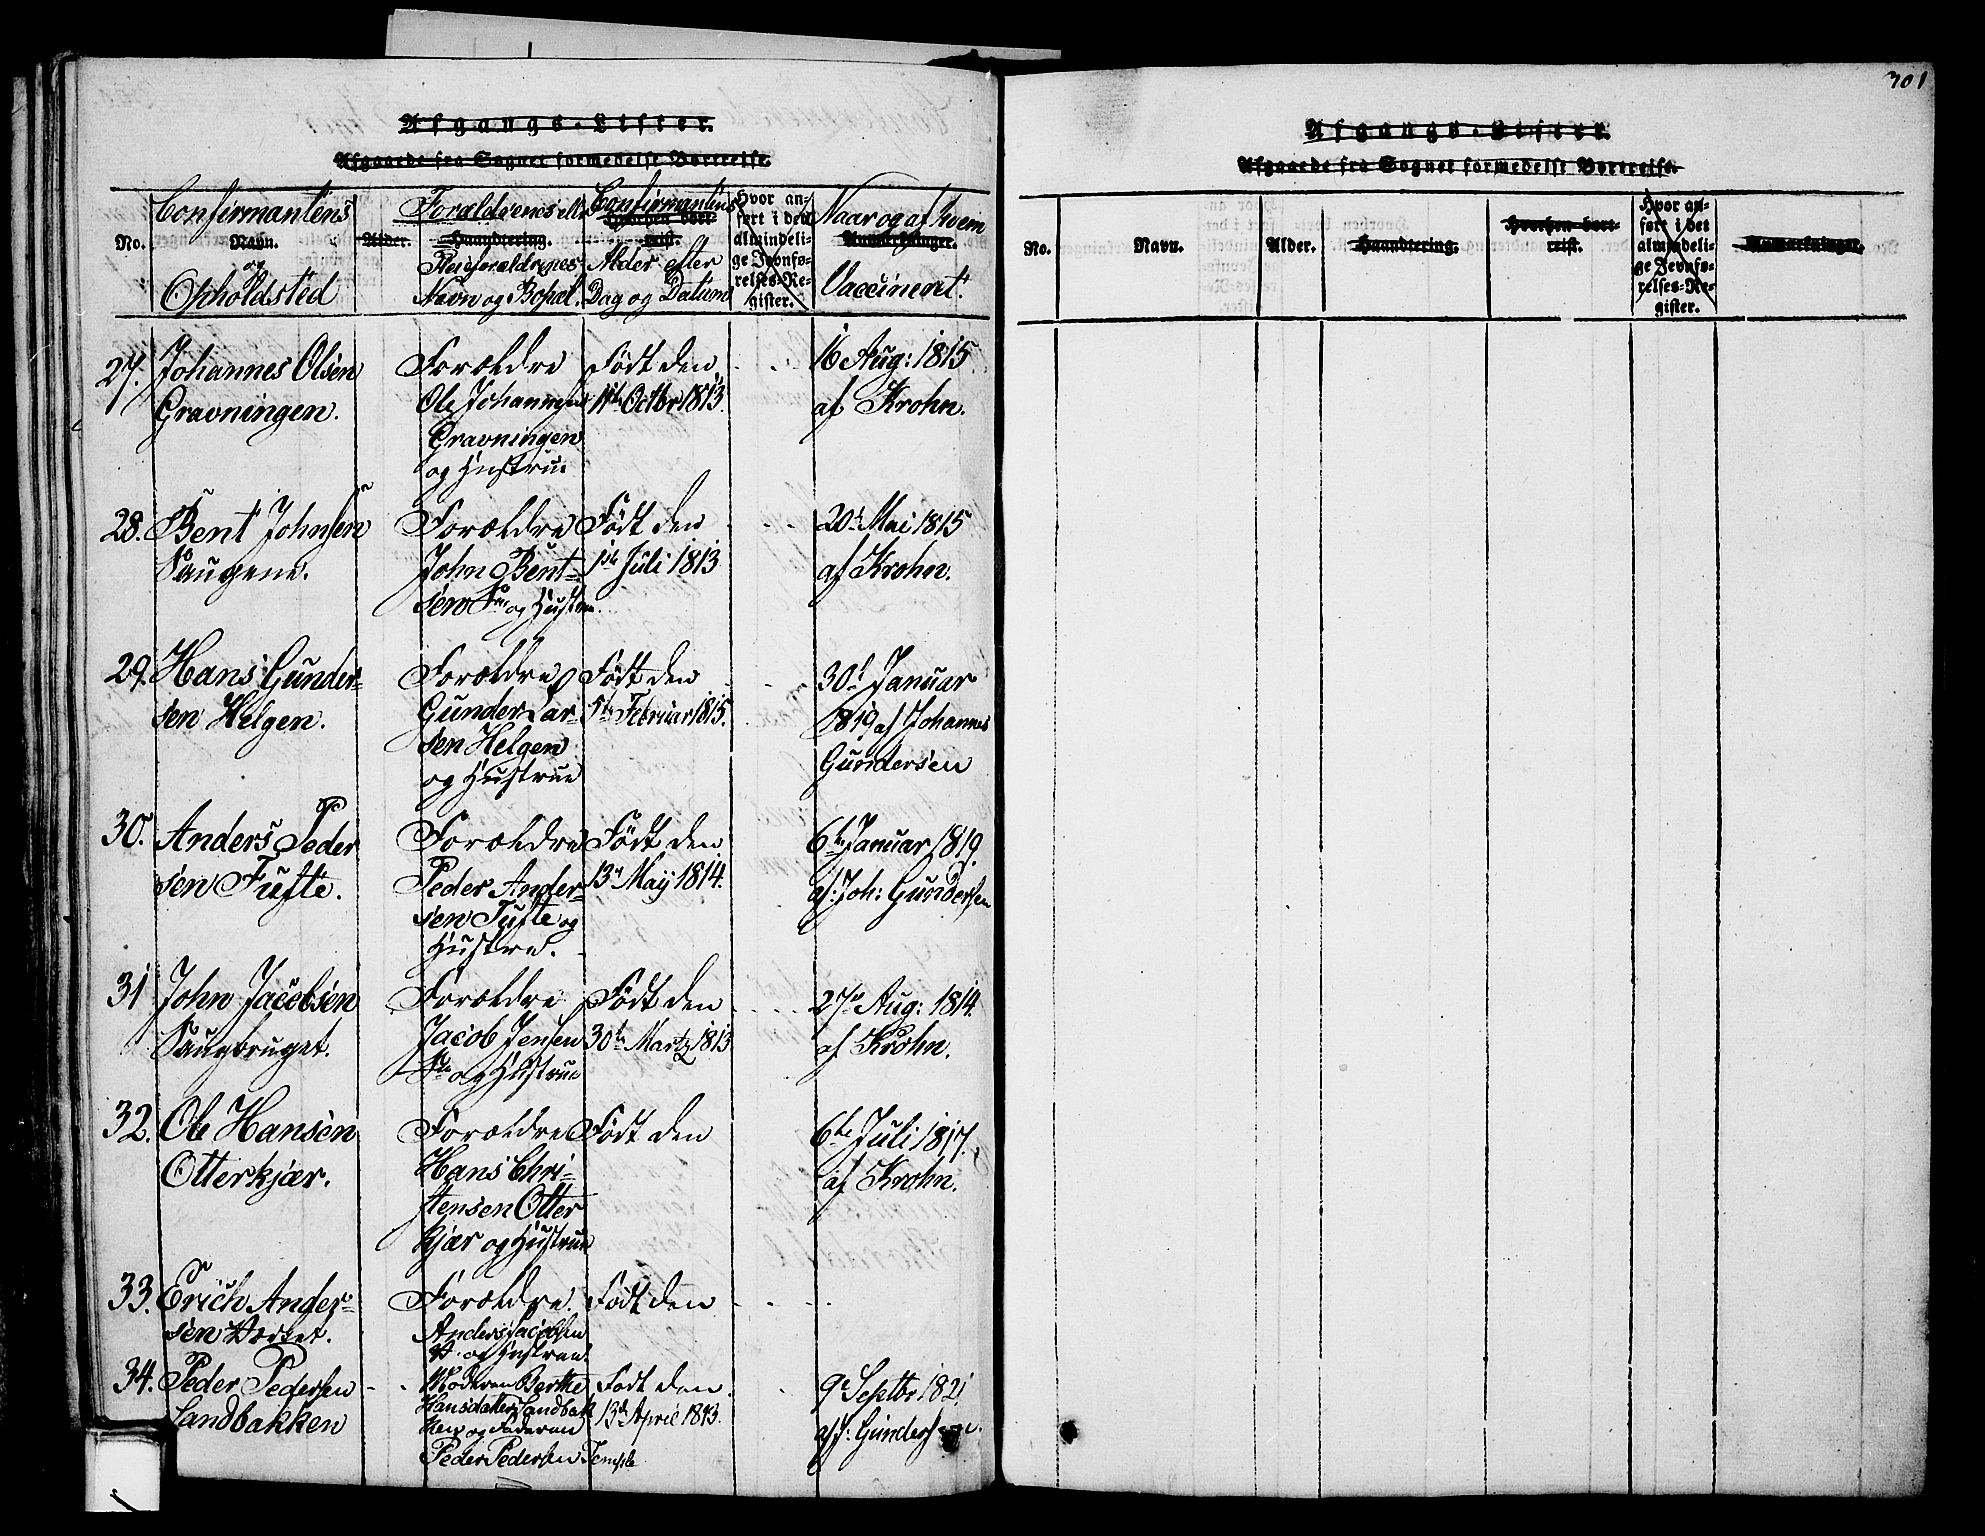 Afgangs-Lister.
Afgaaede fra Sognet formedelst Bortreise.
No.
Confirmantens
Navn.
og
Opholdsted
Alder.
Forældrenes ell:
Haandtering.
Pleieforældrenes
Navn og Bopæl.
Confirmantens
Hvorhen bort-
reist.
Alder efter
Dag og Datum
Hvor an-
ført i det
almindeli-
ge Jevnfø-
relses-Re-
gister.
Naar og af hvem
Anmærkninger.
Vaccineret.
27. Johannes Olsen
Gravningen.
Forældre
Ole Johannesen
Gravningen
og Hustrue
Født den
11te Octbr 1813.
16 Aug: 1815
af Krohn.
28. Bent Johnsen
Saugene.
Forældre
John Bent-
sen og Hustrue.
Født den
1ste Juli 1813
20d Mai 1815
af Krohn.
29. Hans Gunder-
sen Helgen.
Forældre
Gunder Lar-
sen Helgen
og Hustrue
Født den
5te Februar 1815.
30d Januar
1819 af Johannes
Gundersen
30. Anders Peder
sen Tufte.
Forældre
Peder Ander-
sen Tufte og
Hustrue.
Født den
13de May 1814.
6te Januar 1819.
af: Joh: Gundersen
31 John Jacobsen
Saugbruget.
Forældre
Jacob Jensen
og Hustrue
Født den
30te Martz 1813
27de Aug: 1814.
af Krohn.
32. Ole Hansen
Otterkjær.
Forældre
Hans Chri-
stensen Otter
kjær og Hustrue
Født den
6te Juli 1817.
af Krohn.
33. Erich Ander-
sen Værket.
Forældre.
Anders Jacobsen
V. og Hustrue.
Født den
34. Peder Pedersen
Sandbakken
Moderen Berthe
Hansdatter Sandbak
ken og Faderen
Peder Pedersen Temple
Født den
13de April 1813.
9de Septbr 1821
af J: Gundersen.
301
Afgangs-Lister.
Afgaaede fra Sognet formedelst Bortreise.
No.
Navn.
Alder.
Haandtering.
Hvorhen bort-
reist.
Hvor an-
ført i det
almindeli-
ge Jevnfø-
relses-Re-
gister.
Anmærkninger.